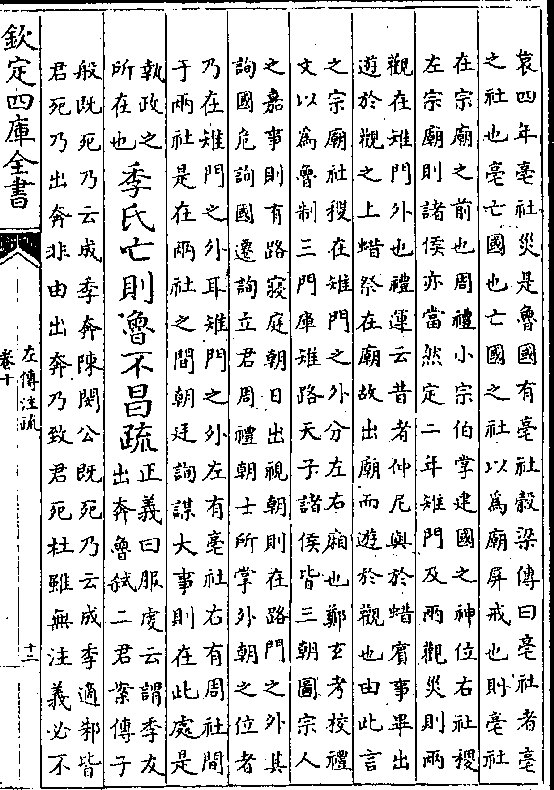 哀四年亳社災是魯國有亳社穀梁傳曰亳社者亳
之社也亳亡國也亡國之社以為廟屏戒也則亳社
在宗廟之前也周禮小宗伯掌建國之神位右社稷
左宗廟則諸侯亦當然定二年雉門及兩觀災則兩
觀在雉門外也禮運云昔者仲尼與於蜡賓事畢出
遊於觀之上蜡祭在廟故出廟而遊於觀也由此言
之宗廟社稷在雉門之外分左右廂也鄭玄考校禮
文以為魯制三門庫雉路天子諸侯皆三朝圖宗人
之嘉事則有路寢庭朝日出視朝則在路門之外其
詢國危詢國遷詢立君周禮朝士所掌外朝之位者
乃在雉門之外耳雉門之外左有亳社右有周社間
于兩社是在兩社之間朝廷詢謀大事則在此處是
執政之
所在也
季氏亡則魯不昌疏
正義曰服虔云謂季友
出奔魯弑二君案傳子
般既死乃云成季奔陳閔公既死乃云成季適邾皆
君死乃出奔非由出奔乃致君死杜雖無注義必不
欽定四庫全書
左傳注疏
卷十
十二